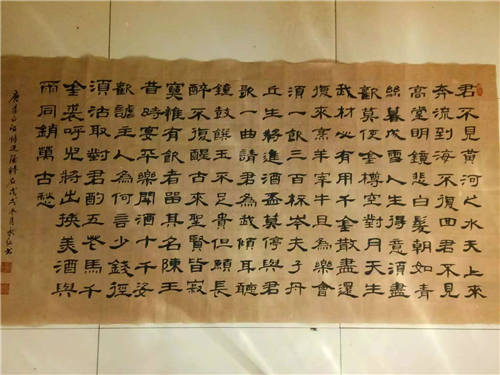 君不見黃河之水天上來
奔流到海不復回君不見
高堂明鏡悲白髮朝如青
絲暮成雪人生得意須盡
歡莫使金樽空對月天生
我材必有用千金散盡還
復來烹羊宰牛且為樂會
須一飲三百杯岑夫子丹
丘生將進酒杯莫停與君
歌一曲請君為我傾耳聽
鐘鼓饌玉不足貴但願長
醉不復醒古來聖賢皆寂
寞惟有飲者留其名陳王
昔時宴平樂鬥酒十千恣
歡謔主人為何言少錢徑
須沽取對君酌五花馬千
金裘呼兒將出換美酒與
爾同銷萬古愁
唐李白詩將進酒